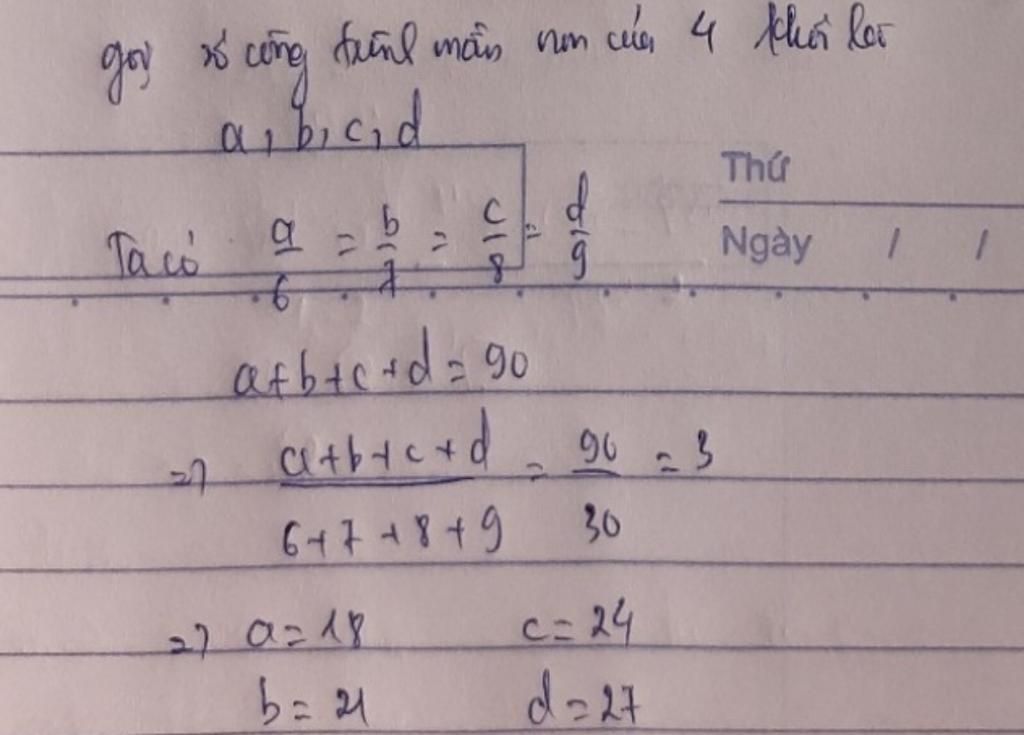 gọi số công trình măng non của 4 khối là
a, b, c, d
Thứ
Ta có a/6 = b/7 = c/8 = d/9
Ngày / /
a+b+c+d = 90
=> (a+b+c+d)/(6+7+8+9) = 90/30 = 3
=> a = 18 c = 24
b = 21 d = 27